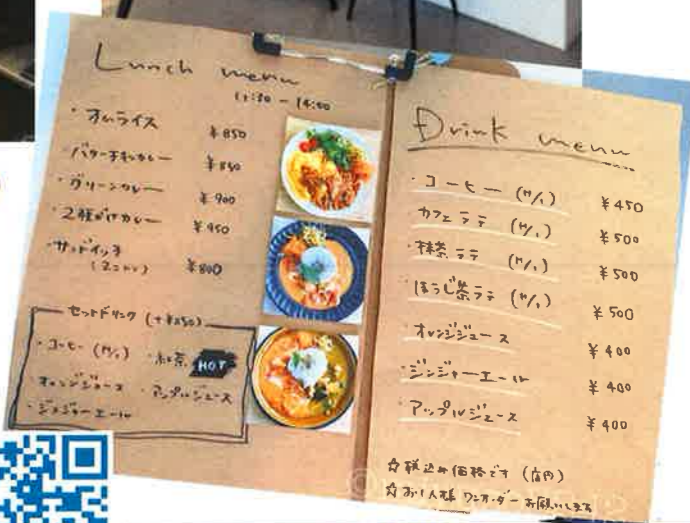 Lunch menu
11:30 - 14:00
・オムライス ¥850
・バターチキンカレー ¥850
・グリーンカレー ¥900
・2種がけカレー ¥950
・サンドイッチ ¥800
セットドリンク (+¥250)
・コーヒー (H/I) ・紅茶 HOT
・オレンジジュース ・アップルジュース
・ジンジャーエール
Drink menu
・コーヒー (H/I) ¥450
・カフェラテ (H/I) ¥500
・抹茶ラテ (H/I) ¥500
・ほうじ茶ラテ (H/I) ¥500
・オレンジジュース ¥400
・ジンジャーエール ¥400
・アップルジュース ¥400
☆税込み価格です (店内)
☆お1人様 ワンオーダーお願いします